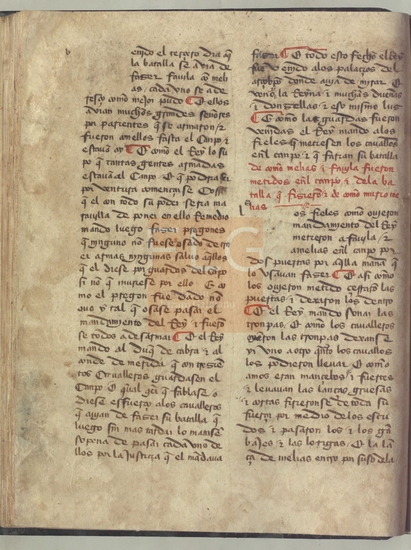 enido el terçero dia q̃
la batalla se auia de
fazer fauila ⁊ meli
as, cada vno se a de
resço como mejor pudo ¶ E ellos
auian muchos grandes señores
por parientes que se armaron ⁊
fueron conellos fasta el Canpo ⁊
estauã ay ¶ E como el Rey lo su
po que tantas gentes armadas
estauã al Canpo E que podria ser
por ventura començarse Cosa
que el con todo su poder seria ma
rauilla de poner en ello Remedio
mando luego fazer pregones
que ninguno no fuese osado de tra
er armas ningunas saluo aq̃llos
que el diese por guardas del Cãpo
si no que muriese por ello E co
mo el pregon fue dado no
ouo y tal que osase pasar el
mandamiento del Rey ⁊ fuerõ
se todos a desarmar ¶ E el Rey
mando al Duq̃ de cabra ⁊ al
conde de
tos Caualleros guardasen el
Canpo E qual quier que fablase o
diese esfuerço alos caualleros
que ayan de fazer su batalla que
luego sin mas tardar lo matasẽ
so pena de pasar cada vno de
llos por la Justiçia que el mãdaua
fazer ¶ E todo esto fecho el Rey
fue veyendo alos palaçios del
arçobp̃o donde auia de mirar E
veno la Reyna ⁊ muchas dueñas
⁊ donzellas ⁊ en eso mismo lug̃
¶ E como las guardas fueron
venidas el Rey mando alos
fieles que metiesen los caualleros
enel canpo ⁊ que farian su batalla
de como melias ⁊ fauila fueron
metidos enel canpo ⁊ dela ba
talla que fizieron ⁊ de como murio me
lias
los fieles como oyeron
mandamiento del Rey
metieron a fauila ⁊ a
melias enel canpo por
dos puertas por aq̃lla manera que
lo vsauan fazer ¶ E asi como
los ouieron metido çerraron las
puertas ⁊ dexaron los dentro
¶ E el Rey mando sonar las
tronpas. E como los caualleros
oyeron las tronpas dexaronse
yr vno a otro quãto los cauallos
los podieron leuar E como
amos eran mançebos ⁊ fuertes
⁊ leuauan las lanças gruesas
⁊ cortas firieronse de toda su
fuerça por medio delos escu
dos ⁊ pasaron los ⁊ los gã
baxes ⁊ las lorigas E la lan
ça de melias entro por suso dela